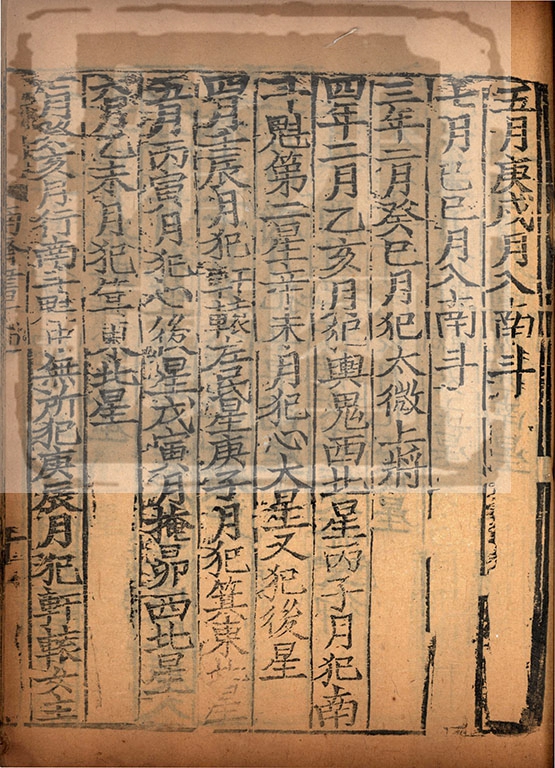 五月庚戌月入南斗
七月己巳月入南斗
三年二月癸巳月犯太微上將
四年二月乙亥月犯輿鬼西北星丙子月犯南
斗魁第二星辛未月犯心大星又犯後星
四月壬辰月犯軒轅左民星庚子月犯箕東北星
五月丙寅月犯心後星戊寅月掩昴西北星
六月乙未月犯箕東北星
七月癸亥月行南斗魁中無所犯庚辰月犯軒轅女主